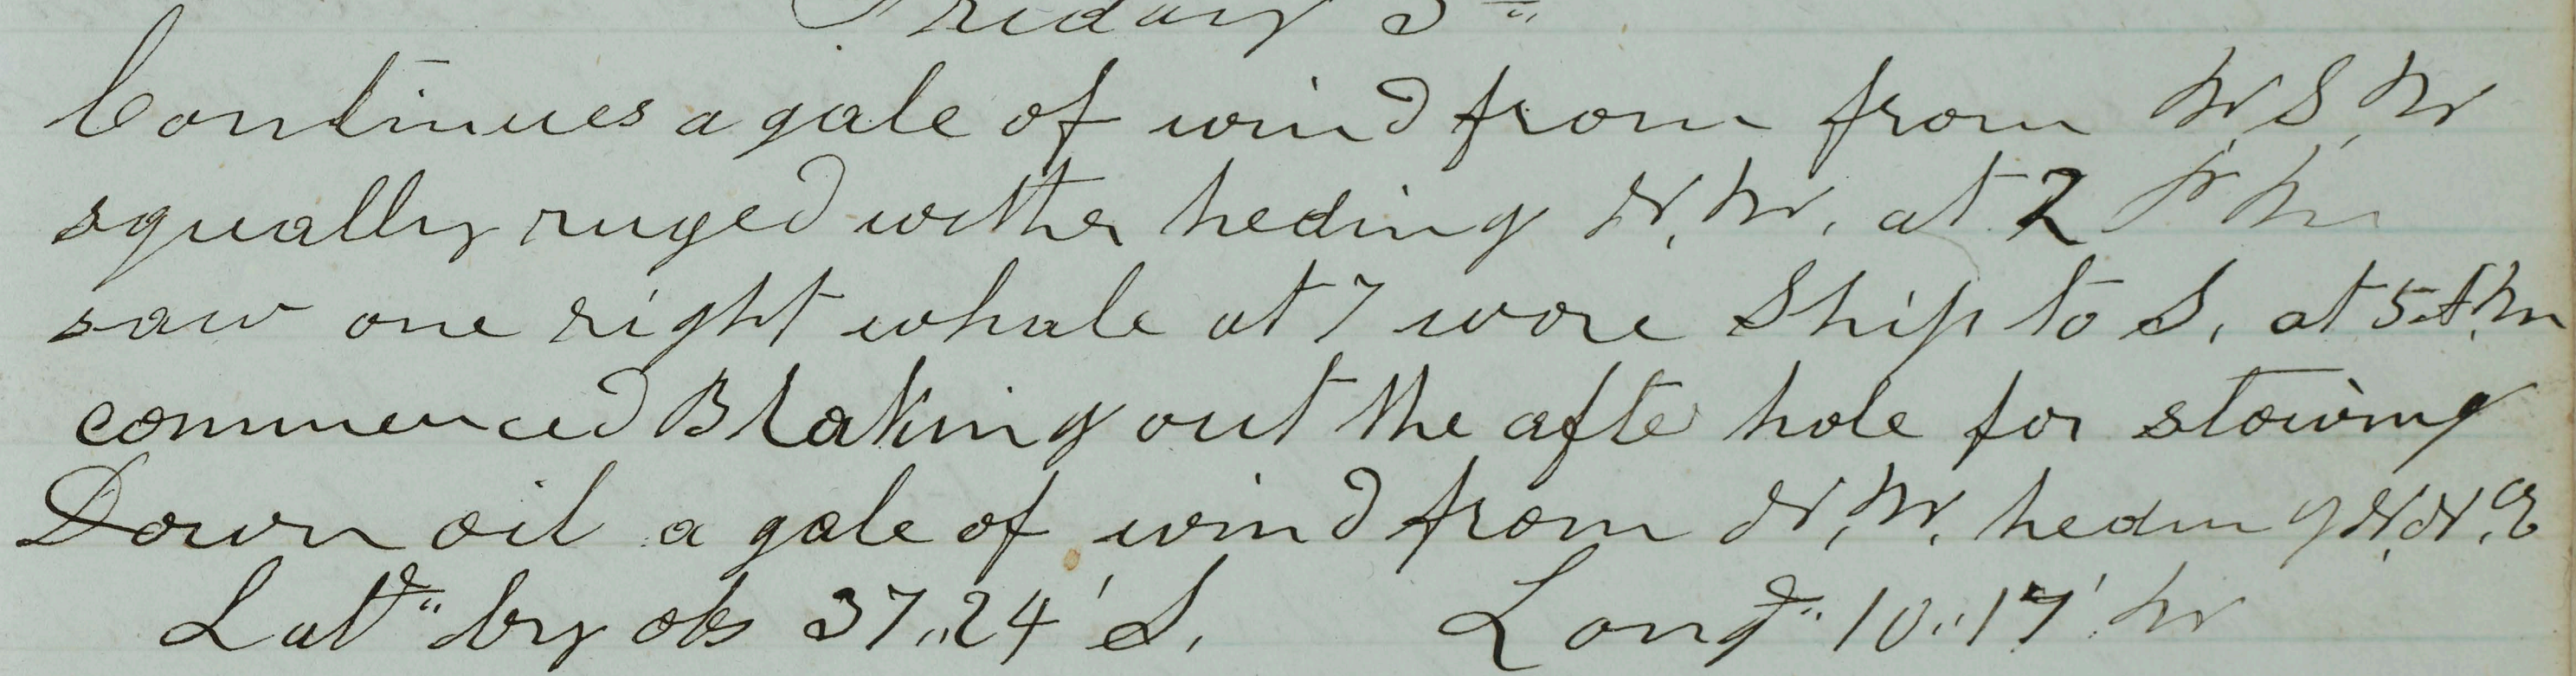 Friday 5th
Continues a gale of wind from from W, S, W
squally ruged wether heding N, W, at 2 P M
saw one right whale at 7 wore Ship to S, at 5 A, M
commenced Braking out the afte hole for stowing
Down oil a gale of wind from N, W, heding N, N, E
Latd" by obs 37,,24' S, Longd" 10,,17' W